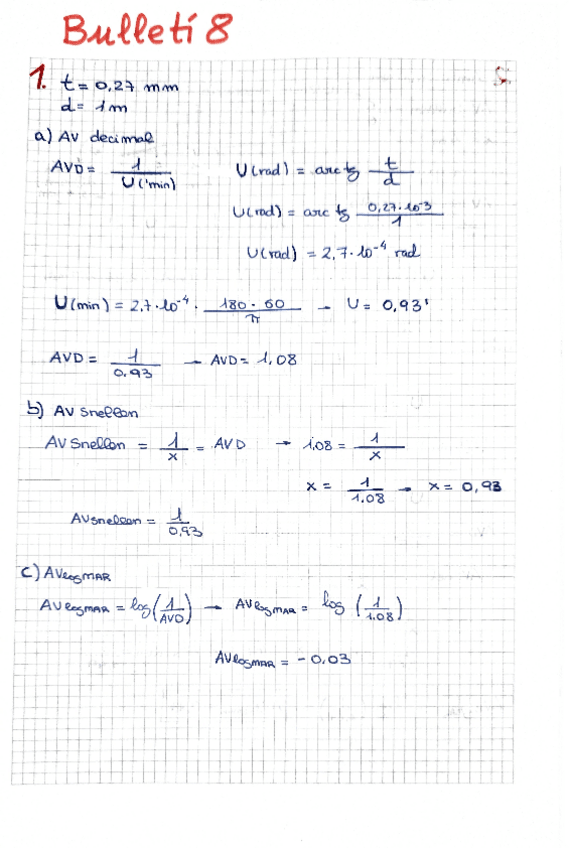 Bulletí 8
1. t = 0,27 mm
d = 1 m
a) AV decimal
AVD = 1 / U('min)
U(rad) = arc tg t / d
U(rad) = arc tg 0,27·10-3 / 1
U(rad) = 2,7·10-4 rad
U(min) = 2,7·10-4 · 180·60 / π → U = 0,93'
AVD = 1 / 0,93 → AVD = 1,08
b) AV Snellen
AV Snellen = 1 / x = AVD → 1,08 = 1 / x
x = 1 / 1.08 → x = 0,93
AV snellen = 1 / 0,93
c) AVlogMAR
AVlogMAR = log(1 / AVD) → AVlogMAR = log (1 / 1.08)
AVlogMAR = - 0,03